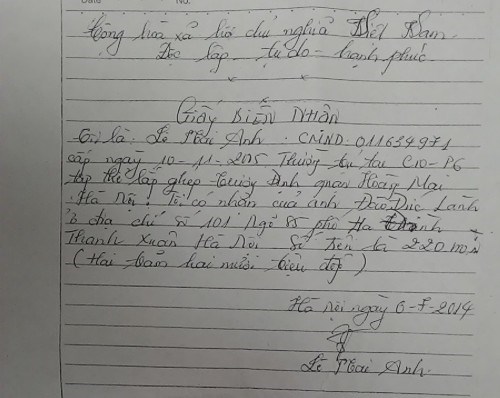 Date No.
Cộng hòa xả hội chủ nghĩa Việt Nam
Độc lập - tự do - hạnh phúc
Giấy Biên Nhận
Tôi là: Lê Mai Anh. CMND: 011634971
cấp ngày 10-11-2005 Thường trú tại C10-P6
tập thể lắp ghép Trương Định quận Hoàng Mai
Hà Nội. Tôi có nhận của anh Đào Đức Lành
ở địa chỉ số 101 Ngõ 85 phố Hạ Đình
Thanh Xuân Hà Nội Số tiền là 220
(Hai trăm hai mươi triệu đồng)
Hà Nội ngày 6-7-2014
Lê Mai Anh